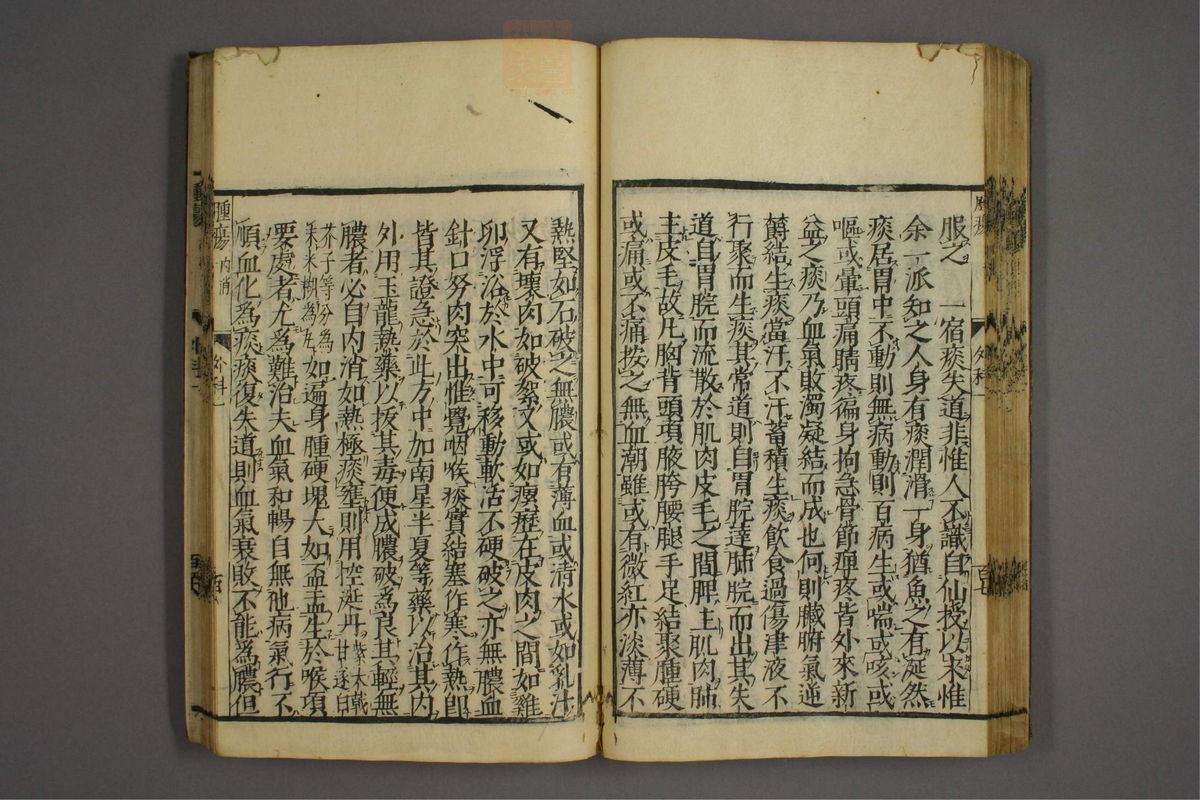 服之　一宿痰失道非惟人不識自仙授以來惟
余一派知之人身有痰潤滑一身猶魚之有涎然
痰居胃中不動則無病動則百病生或喘或咳或
嘔或暈頭痛睛疼徧身拘急骨節痺疼皆外來新
益之痰乃血氣敗濁凝結而成也何則臟腑氣逆
欝結生痰當汗不汗蓄積生痰飲食過傷津液不
行聚而生痰其常道則自胃脘達肺脘而出其失
道自胃脘而流散於肌肉皮毛之間脾主肌肉肺
主皮毛故凡胸背頭項腋胯腰腿手足結聚腫硬
或痛或不痛按之無血潮雖或有微紅亦淡薄不
熱堅如石破之無膿或有薄血或清水或如乳汁
又有壞肉如破絮又或如瘰癧在皮肉之間如雞
卵浮浴於水中可移動軟活不硬破之亦無膿血
針口努肉突出惟覺咽喉痰實結塞作寒作熱即
皆其證急於此方中加南星半夏等藥以治其内
外用玉龍熱藥以拔其毒便成膿破爲良其輕無
膿者必自内消如熱極痰壅則用控涎丹紫大戟甘遂白
芥子等分為
末米糊為丸如遍身腫硬塊大如盂盂生於喉項
要處者尤爲難治夫血氣和暢自無他病氣行不
順血化爲痰痰復失道則血氣衰敗不能爲膿但
腫瘍
内消
外科一